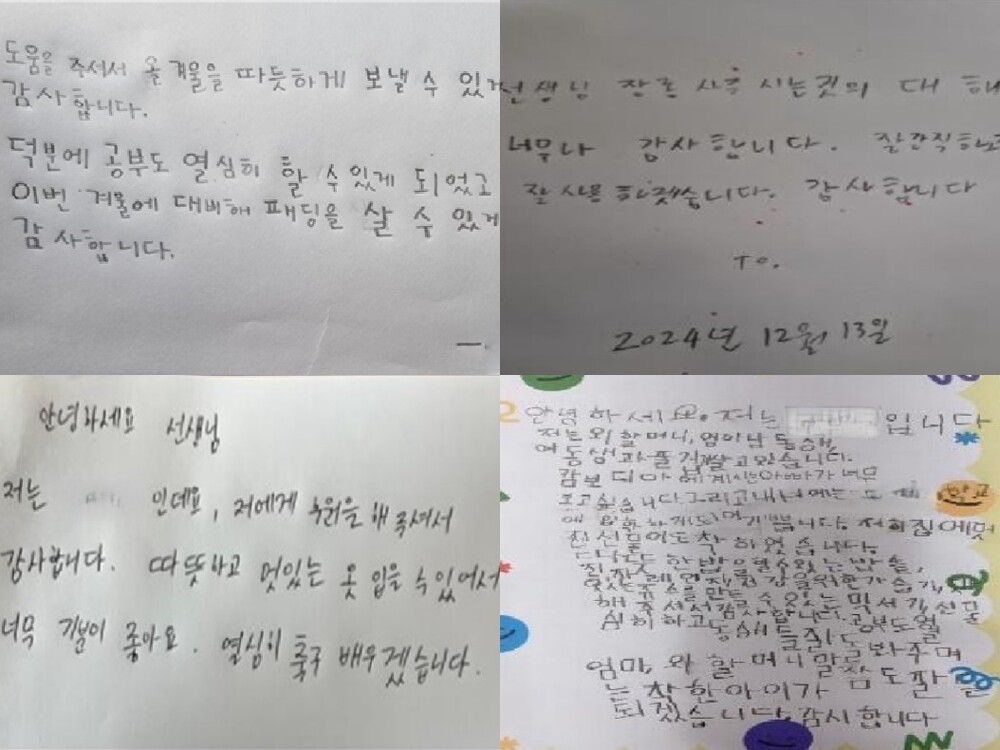 도움을 주셔서 올 겨울을 따듯하게 보낼 수 있게
감사합니다.
덕분에 공부도 열심히 할 수 있게 되었고
이번 겨울에 대비해 패딩을 살 수 있게
감사합니다.
선생님 장로 사주 시는것의 대 해
너무나 감사합니다. 잘간직하고
잘 사용 하겠습니다. 감사합니다
TO.
2024년 12월 13일
안녕하세요 선생님
저는 인데요, 저에게 후원을 해 주셔서
감사합니다. 따뜻하고 멋있는 옷 입을 수 있어서
너무 기분이 좋아요. 열심히 축구 배우겠습니다.
안녕하세요. 저는 입니다
저는 외할머니, 엄마, 남동생,
여동생과 즐겁게 살고있습니다.
아빠가 너무
보고싶습니다 그리고 내년에는 학교
기쁩니다. 저희집에 멋
진 선물이 도착 하였습니다.
맛있는 밥을 할 수 있는 밥솥,
만들 수 있는 믹서기, 선물
해주셔서 감사합니다. 공부도 열
심히 하고 동생들 잘 돌봐주며
엄마, 외할머니 말씀도 잘 듣
는 착한아이가
되겠습니다. 감사합니다